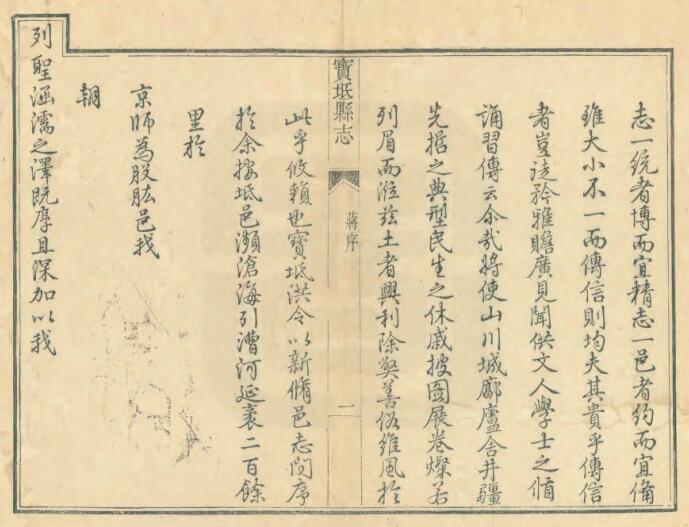 志一統者博而宜精志一邑者約而宜備
雖大小不一而傳信則均夫其貴乎傳信
者豈徒矜雅贍廣見聞供文人學士之
誦習傳云尒哉將使山川城廓廬舍井疆
先招之典型民生之休戚披圖展卷燦若
列眉而涖茲土者興利除弊善俗維風於
寶坻縣志
蔣序
一
此乎攸賴也寶坻洪令以新脩邑志問序
於余按坻邑瀕滄海列漕河延袤二百餘
里於
京師為股肱邑我
朝
列聖涵濡之澤既厚且深加以我